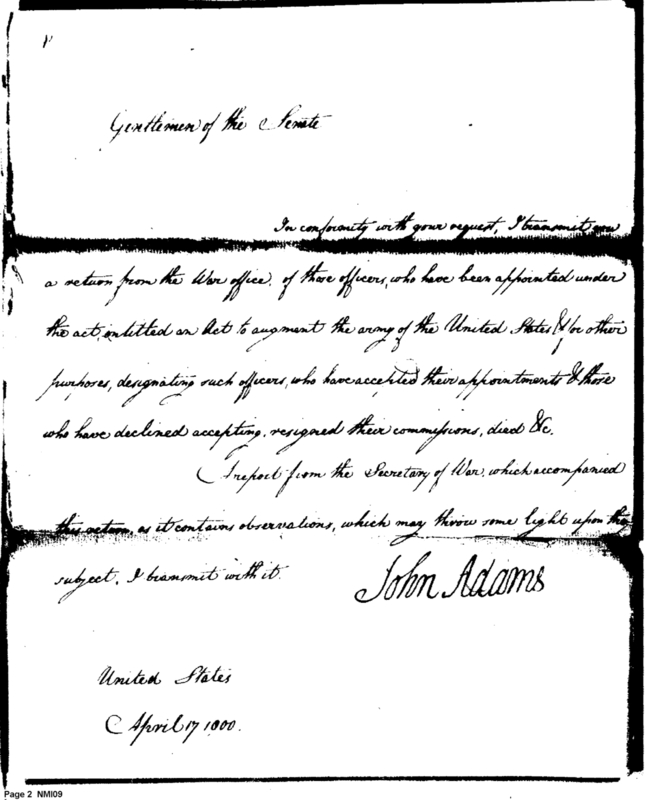 Gentlemen of the Senate
In conformity with your request, I transmit you
a return from the War office, of those officers, who have been appointed under
the act, entitled an Act to augment the army of the United States & for other
purposes, designating such officers, who have accepted their appointments & those
who have declined accepting, resigned their commissions, died &c.
A report from the Secretary of War, which accompanied
this return, as it contains observations, which may throw some light upon the
subject, I transmit with it.
John Adams
United States
April 17 1800.
Page 2 NMI09